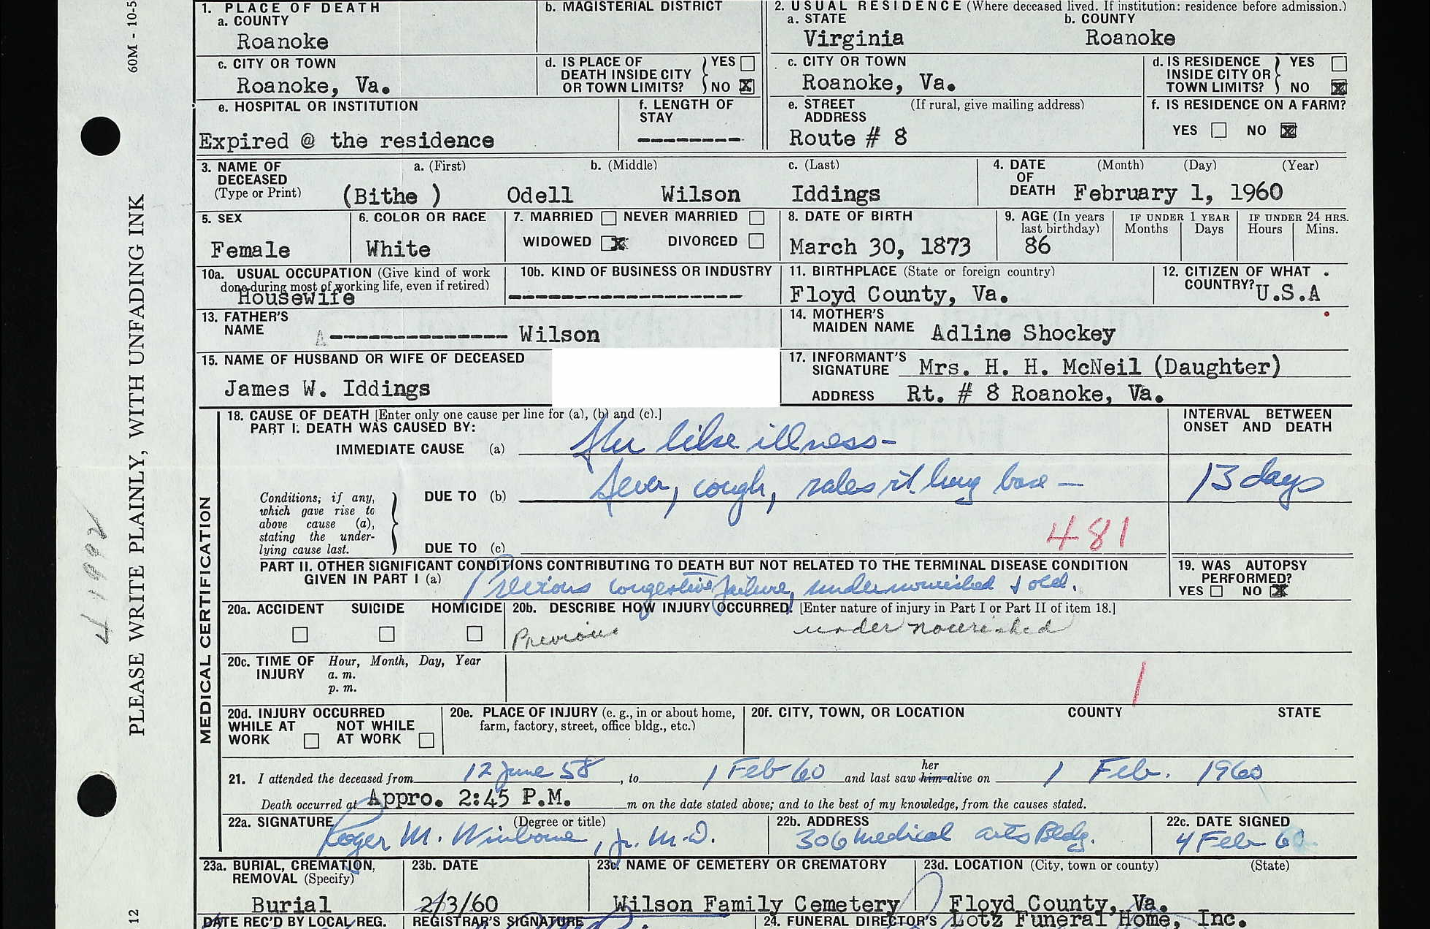 60M - 10-5
PLEASE WRITE PLAINLY, WITH UNFADING INK
12
1. PLACE OF DEATH
a. COUNTY
Roanoke
b. MAGISTERIAL DISTRICT
2. USUAL RESIDENCE (Where deceased lived. If institution: residence before admission.)
a. STATE
Virginia
b. COUNTY
Roanoke
c. CITY OR TOWN
Roanoke, Va.
d. IS PLACE OF DEATH INSIDE CITY OR TOWN LIMITS? YES NO X
c. CITY OR TOWN
Roanoke, Va.
d. IS RESIDENCE INSIDE CITY OR TOWN LIMITS? YES NO X
e. HOSPITAL OR INSTITUTION
Expired @ the residence
f. LENGTH OF STAY
----------
e. STREET ADDRESS (If rural, give mailing address)
Route # 8
f. IS RESIDENCE ON A FARM?
YES NO X
3. NAME OF DECEASED (Type or Print)
a. (First) b. (Middle) c. (Last)
(Bithe ) Odell Wilson Iddings
4. DATE OF DEATH (Month) (Day) (Year)
February 1, 1960
5. SEX
Female
6. COLOR OR RACE
White
7. MARRIED NEVER MARRIED
WIDOWED X DIVORCED
8. DATE OF BIRTH
March 30, 1873
9. AGE (In years last birthday)
86
IF UNDER 1 YEAR
Months Days
IF UNDER 24 HRS.
Hours Mins.
10a. USUAL OCCUPATION (Give kind of work done during most of working life, even if retired)
Housewife
10b. KIND OF BUSINESS OR INDUSTRY
--------------------
11. BIRTHPLACE (State or foreign country)
Floyd County, Va.
12. CITIZEN OF WHAT COUNTRY?
U.S.A
13. FATHER'S NAME
A--------------- Wilson
14. MOTHER'S MAIDEN NAME
Adline Shockey
15. NAME OF HUSBAND OR WIFE OF DECEASED
James W. Iddings
17. INFORMANT'S SIGNATURE Mrs. H. H. McNeil (Daughter)
ADDRESS Rt. # 8 Roanoke, Va.
MEDICAL CERTIFICATION
18. CAUSE OF DEATH [Enter only one cause per line for (a), (b) and (c).]
PART I. DEATH WAS CAUSED BY:
IMMEDIATE CAUSE (a) Flu like illness-
INTERVAL BETWEEN ONSET AND DEATH
Conditions, if any, which gave rise to above cause (a), stating the underlying cause last.
DUE TO (b) fever, cough, rales rt. lung base —
13 days
DUE TO (c)
481
PART II. OTHER SIGNIFICANT CONDITIONS CONTRIBUTING TO DEATH BUT NOT RELATED TO THE TERMINAL DISEASE CONDITION
GIVEN IN PART I (a) Previous congestive failure, undernourished & old.
19. WAS AUTOPSY PERFORMED?
YES NO X
20a. ACCIDENT SUICIDE HOMICIDE
20b. DESCRIBE HOW INJURY OCCURRED. [Enter nature of injury in Part I or Part II of item 18.]
Previous under nourished
20c. TIME OF INJURY Hour, Month, Day, Year
a. m.
p. m.
1
20d. INJURY OCCURRED
WHILE AT WORK NOT WHILE AT WORK
20e. PLACE OF INJURY (e. g., in or about home, farm, factory, street, office bldg., etc.)
20f. CITY, TOWN, OR LOCATION COUNTY STATE
21. I attended the deceased from 12 June 58, to 1 Feb 60 and last saw him her alive on 1 Feb. 1960
Death occurred at Appro. 2:45 P.M. m on the date stated above; and to the best of my knowledge, from the causes stated.
22a. SIGNATURE (Degree or title)
Roger M. Winborne, Jr. M.D.
22b. ADDRESS
306 Medical Arts Bldg.
22c. DATE SIGNED
4 Feb 60
23a. BURIAL, CREMATION, REMOVAL (Specify)
Burial
23b. DATE
2/3/60
23c. NAME OF CEMETERY OR CREMATORY
Wilson Family Cemetery
23d. LOCATION (City, town or county) (State)
Floyd County, Va.
DATE REC'D BY LOCAL REG.
REGISTRAR'S SIGNATURE
24. FUNERAL DIRECTOR'S Lotz Funeral Home, Inc.